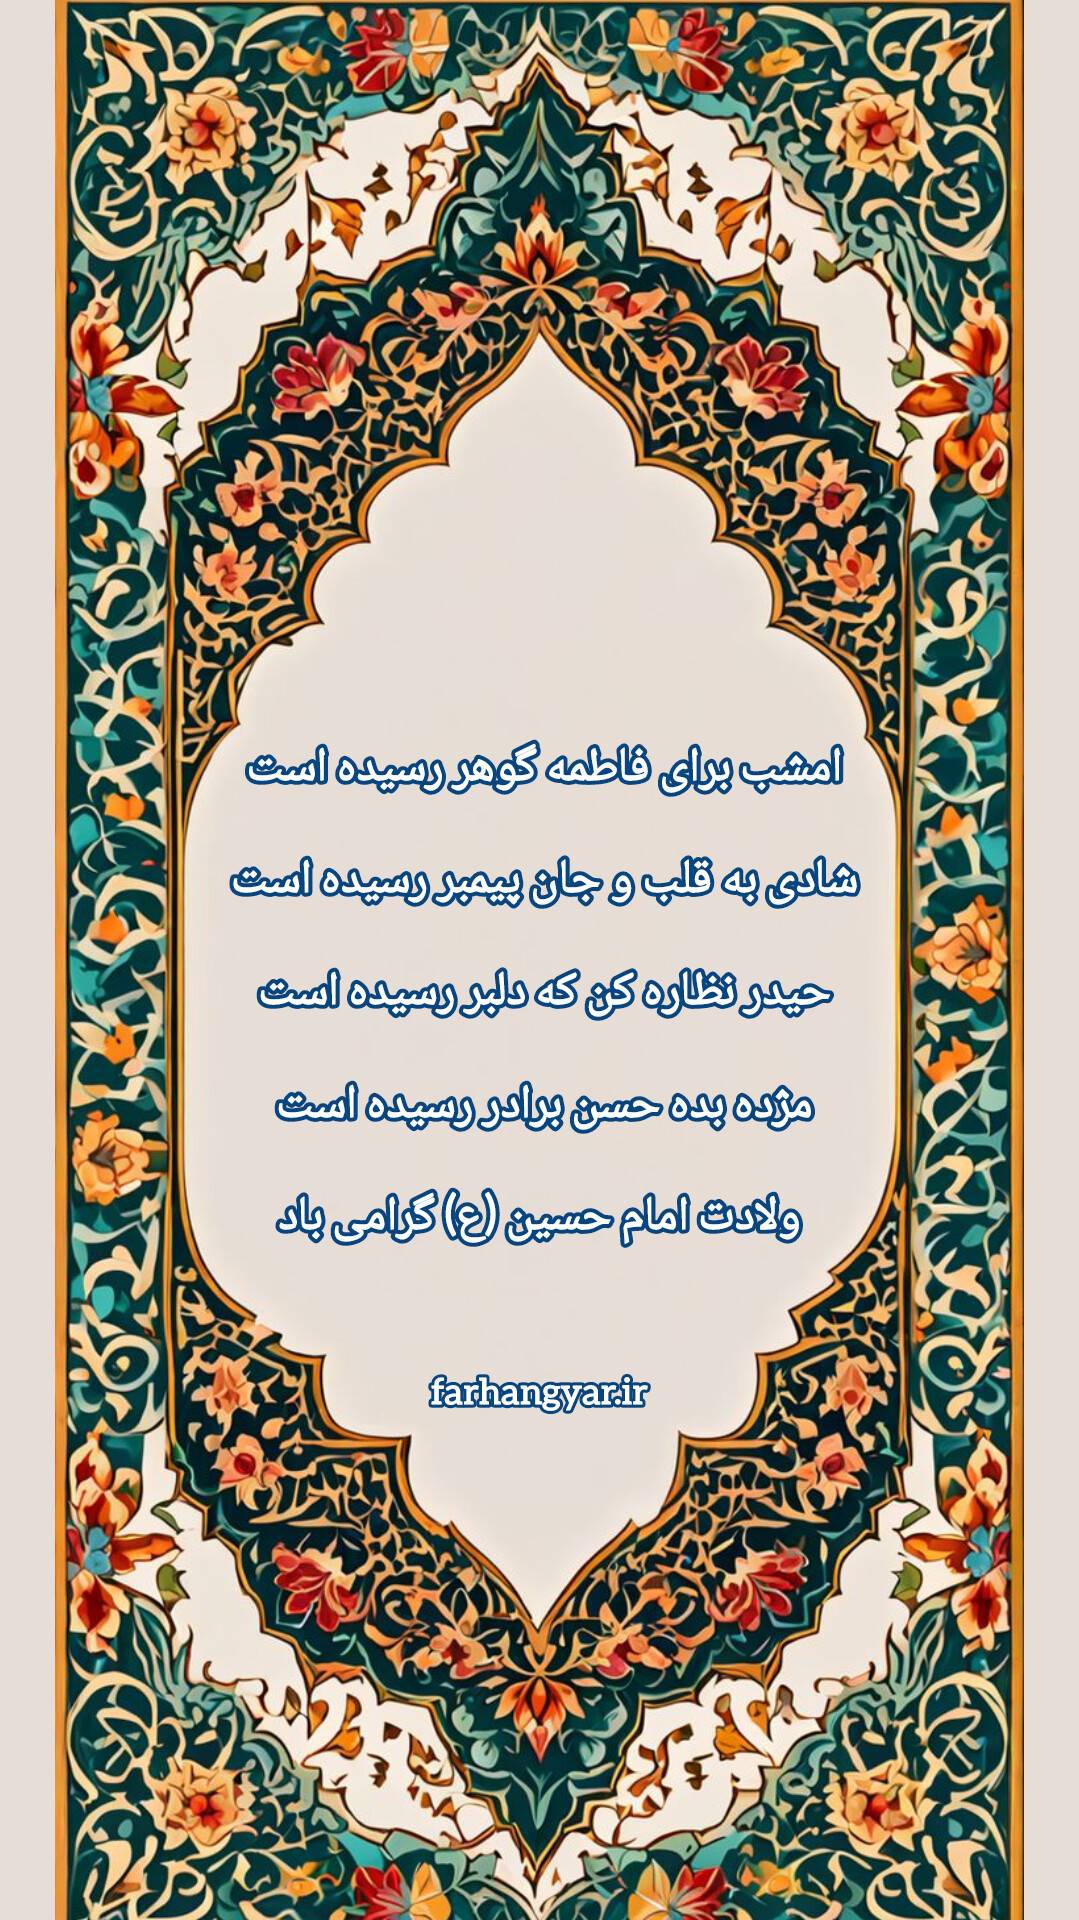 امشب برای فاطمه گوهر رسیده است
شادی به قلب و جان پیمبر رسیده است
حیدر نظاره کن که دلبر رسیده است
مژده بده حسن برادر رسیده است
ولادت امام حسین (ع) گرامی باد
farhangyar.ir